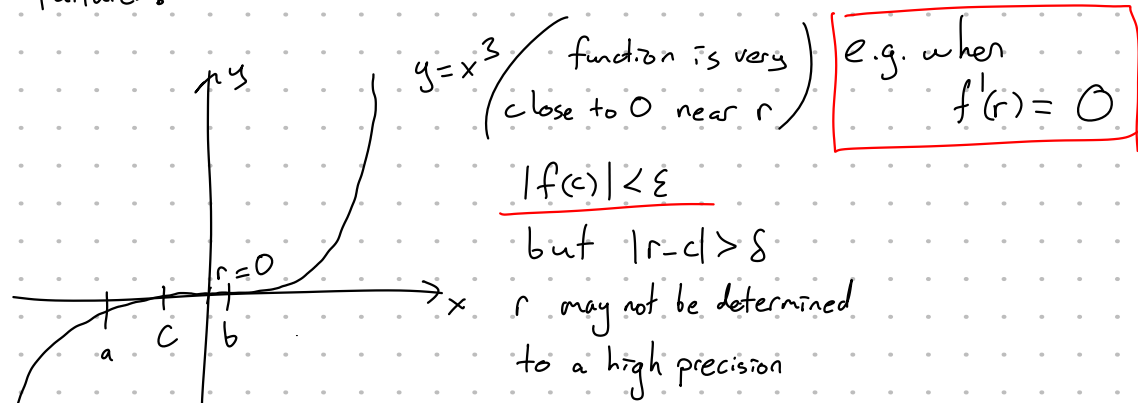 y
y=x³
function is very
close to 0 near r
e.g. when
f'(r) = 0
|f(c)| < ε
but |r-c| > δ
r may not be determined
to a high precision
r=0
x
a
c
b